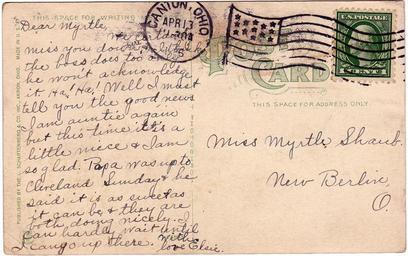 THIS SPACE FOR WRITING
CANTON, OHIO
APR 13
U.S. POSTAGE
1 CENT 1
POST
CARD
THIS SPACE FOR ADDRESS ONLY
Dear Myrtle,
miss you down
the boss does too
he won't acknowledge
it Ha! Ha! Well I must
tell you the good news
I am auntie again
but this time it's a
little niece & I am
so glad. Papa was up to
Cleveland Sunday & he
said it is as sweet as
it can be & they are
both doing nicely. I
can hardly wait until
I can go up there. With
love Elsie.
Miss Myrtle Shaub.
New Berlin,
O.